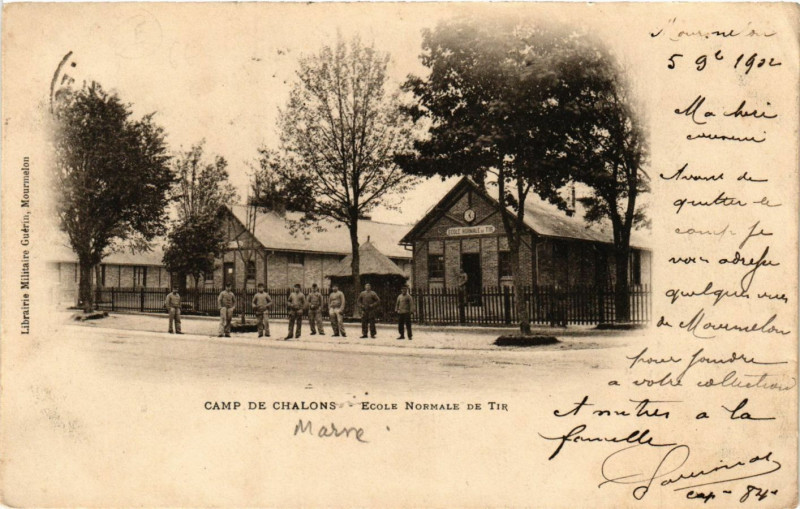 Librairie Militaire Guérin, Mourmelon
ECOLE NORMALE DE TIR
CAMP DE CHALONS - Ecole Normale de Tir
Marne
Mourmelon
5 9e 1902
Ma chère
cousine
Avant de
quitter le
camp je
vais
quelques vues
de Mourmelon
pour joindre
a votre collection
a la
famille